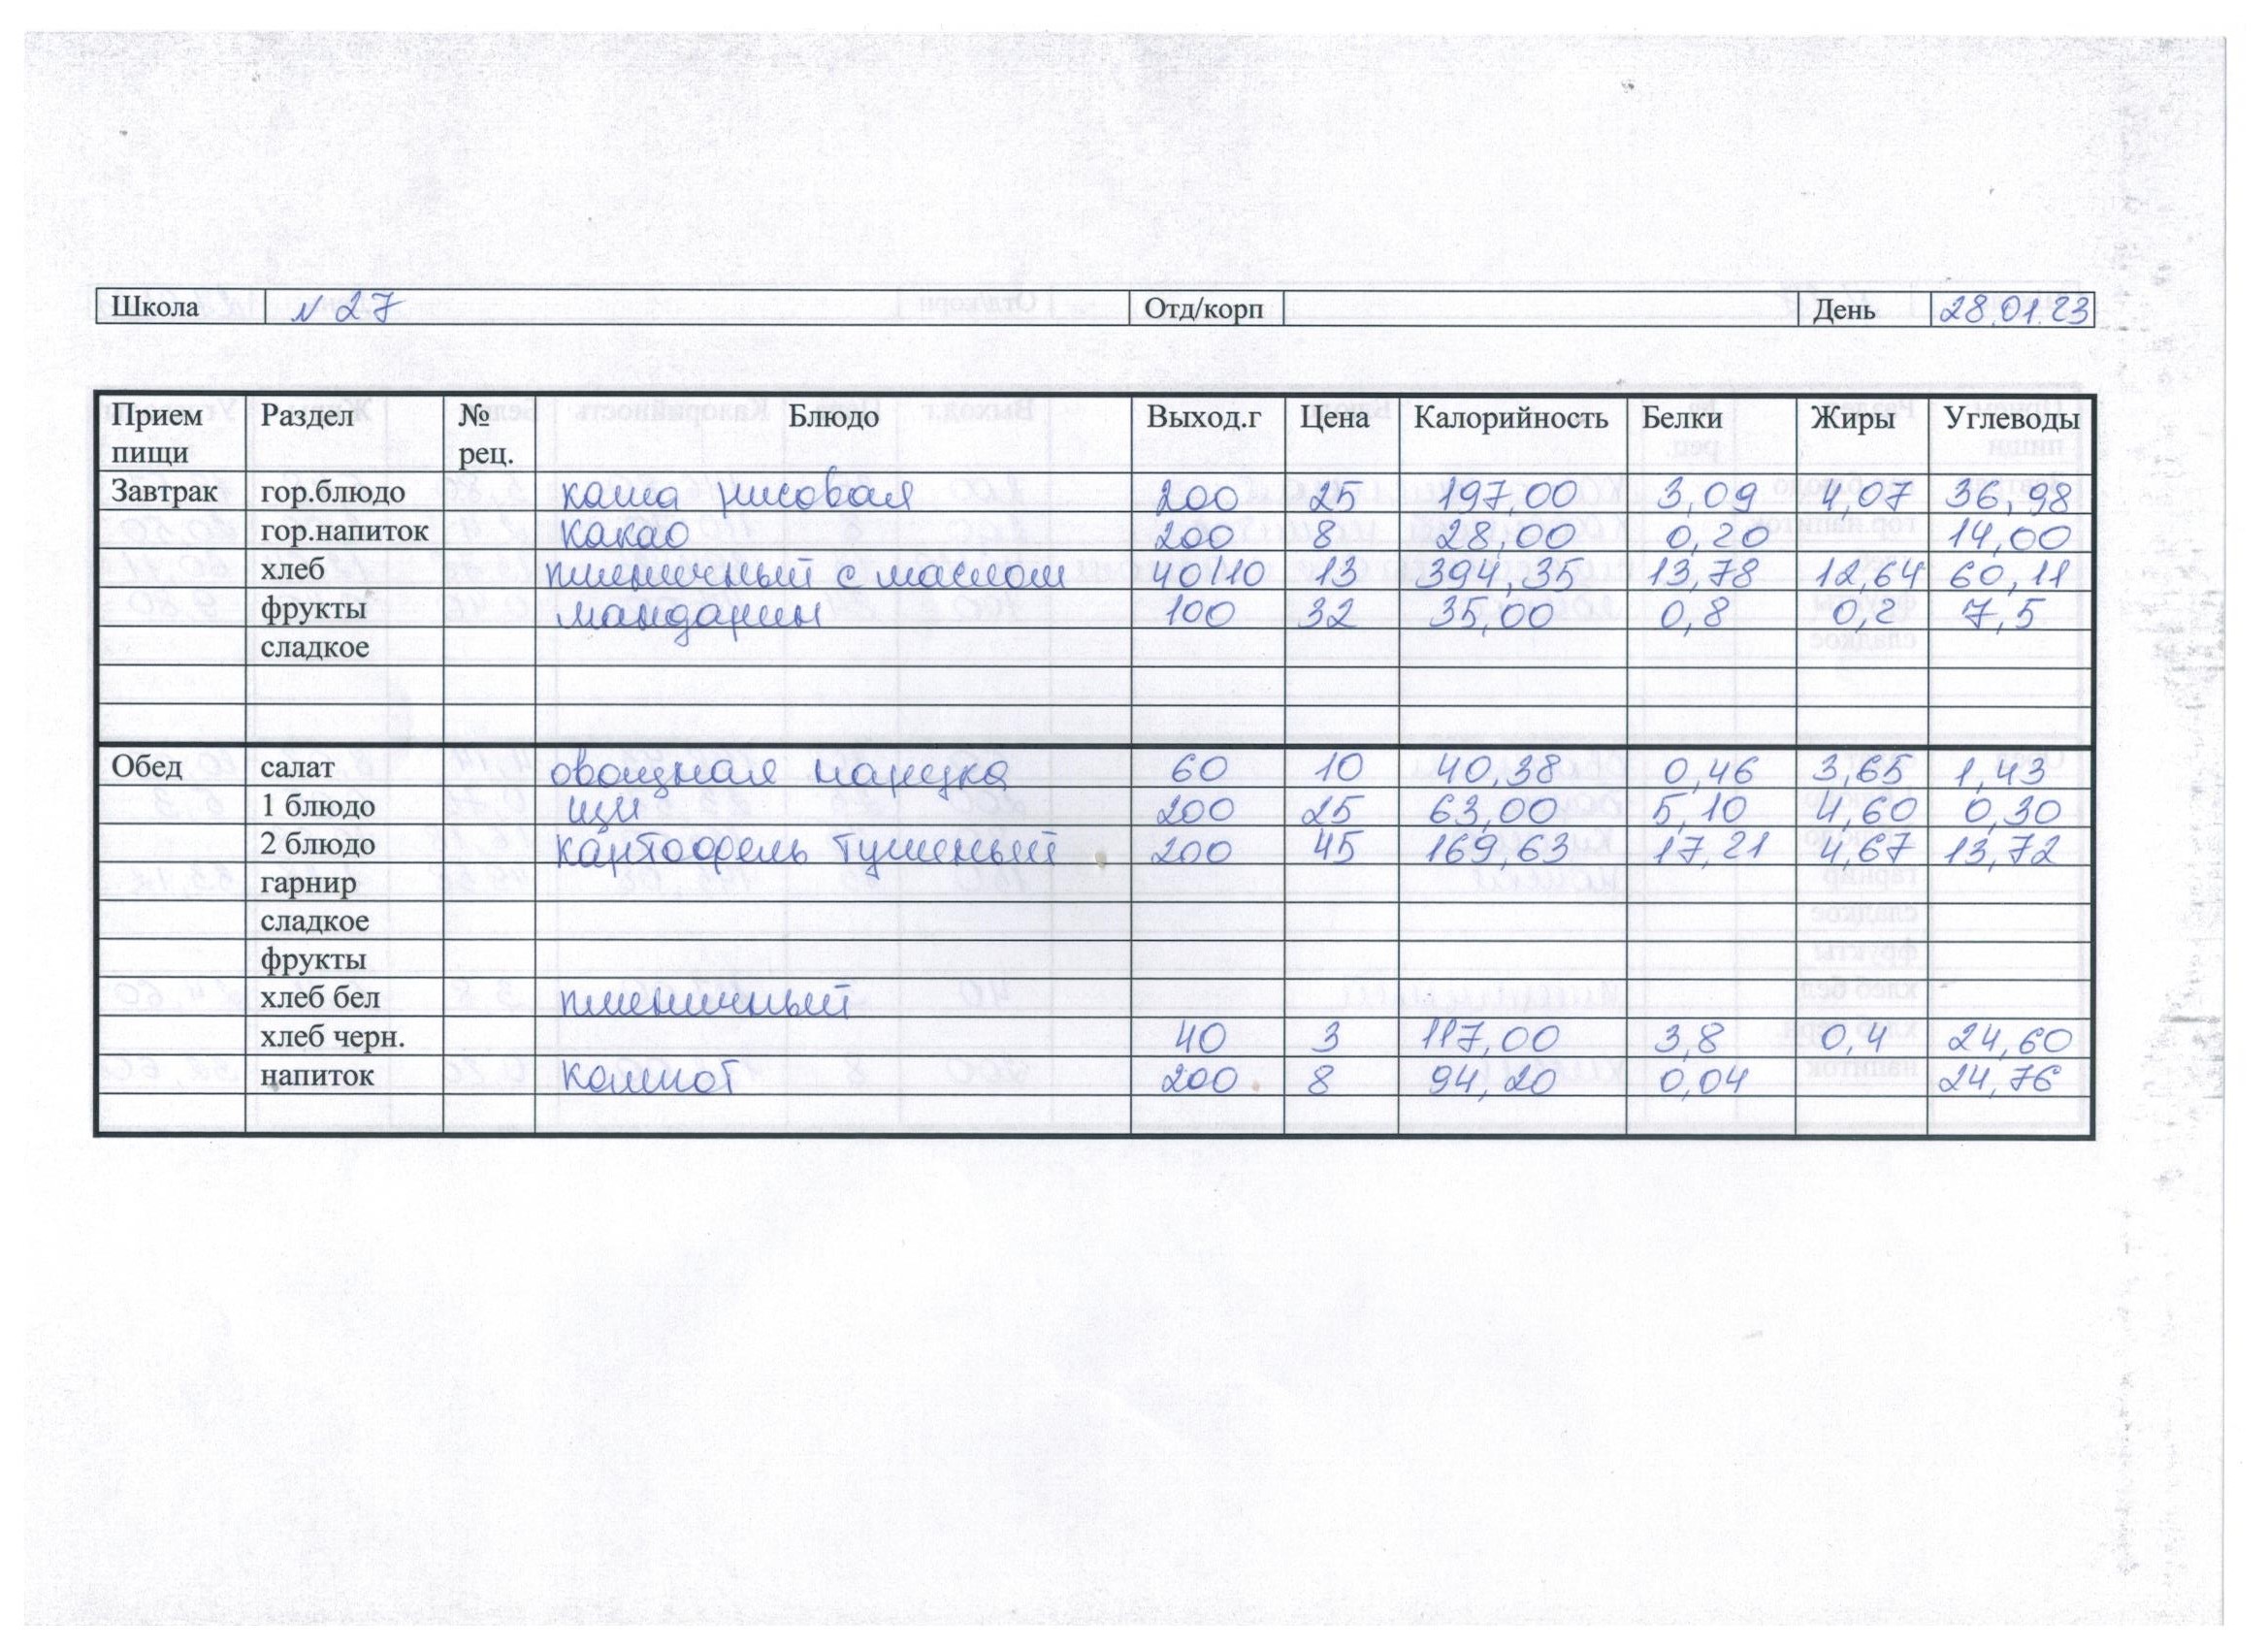 Школа N 27 Отд/корп День 28.01.23
Прием пищи Раздел № рец. Блюдо Выход.г Цена Калорийность Белки Жиры Углеводы
Завтрак гор.блюдо каша рисовая 200 25 197,00 3,09 4,07 36,98
гор.напиток Какао 200 8 28,00 0,20 14,00
хлеб пшеничный с маслом 40/10 13 394,35 13,78 12,64 60,11
фрукты мандарин 100 32 35,00 0,8 0,2 7,5
сладкое
Обед салат овощная нарезка 60 10 40,38 0,46 3,65 1,43
1 блюдо щи 200 25 63,00 5,10 4,60 0,30
2 блюдо картофель тушеный 200 45 169,63 17,21 4,67 13,72
гарнир
сладкое
фрукты
хлеб бел пшеничный
хлеб черн. 40 3 117,00 3,8 0,4 24,60
напиток Компот 200 8 94,20 0,04 24,76